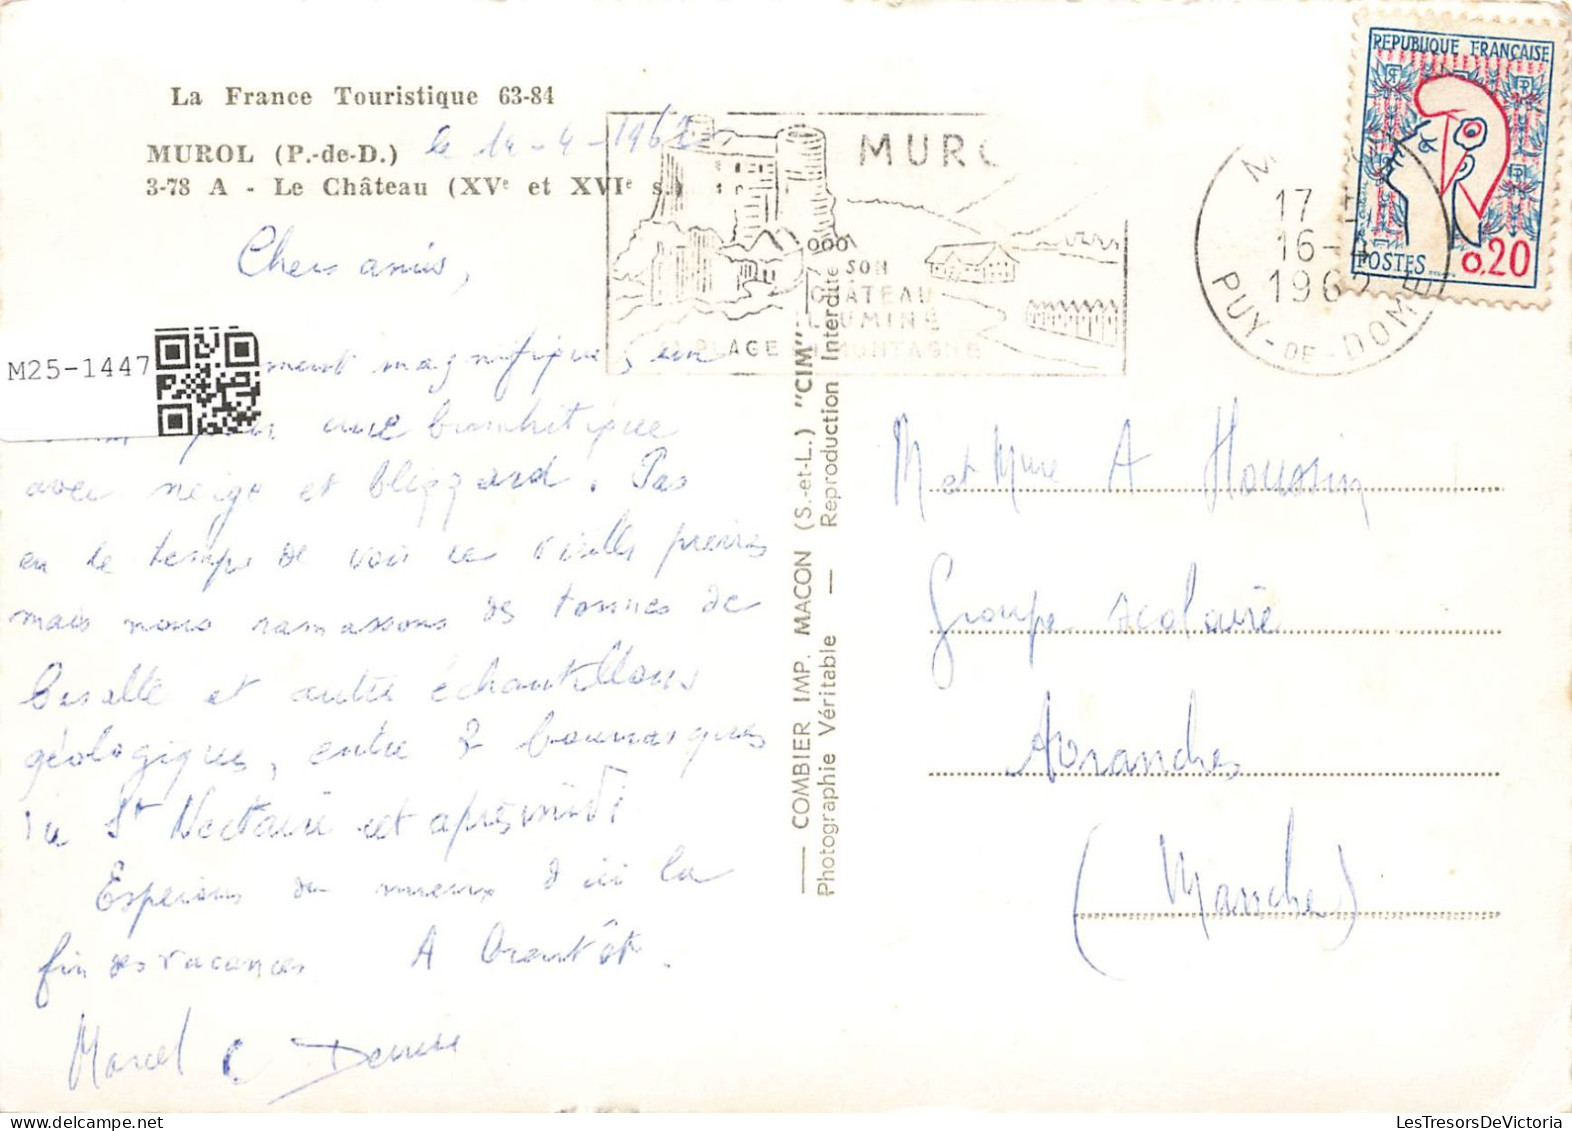 La France Touristique 63-84
MUROL (P.-de-D.) le 14-4-1962
3-78 A - Le Château (XVe et XVIe s.)
MURO
SON
CHÂTEAU
ILLUMINÉ
PLAGE MONTAGNE
17 H
16-4
1962
PUY-DE-DOME
REPUBLIQUE FRANÇAISE
POSTES 0,20
M25-1447
Chers amis,
magnifique, un
une
avec neige et blizzard. Pas
eu le temps de voir ces vieilles pierres
mais nous ramassons des tonnes de
basalte et autres échantillons
géologiques, entre 2 bourrasques
St Nectaire cet après midi
Espérons du mieux d'ici la
fin des vacances A bientôt.
Marcel Denise
COMBIER IMP. MACON (S.-et-L.) "CIM"
Photographie Véritable — Reproduction Interdite
M et Mme A Houssin
Groupe scolaire
Avranches
(Manche)
LesTresorsDeVictoria